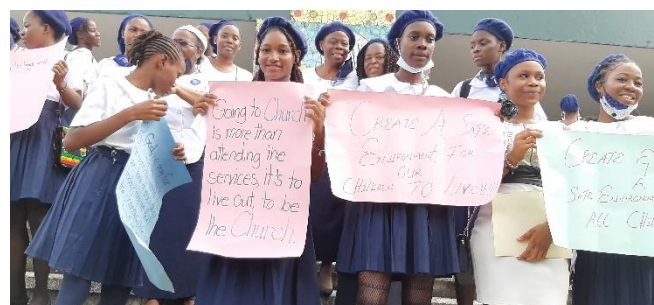 Going to Church
is more than
attending the
services, it's to
live out to be
the Church.
CREATE A SAFE
ENVIRONMENT FOR
OUR
CHILDREN TO LIVE
CREATE
A
SAFE ENVIRONM
ALL CHI